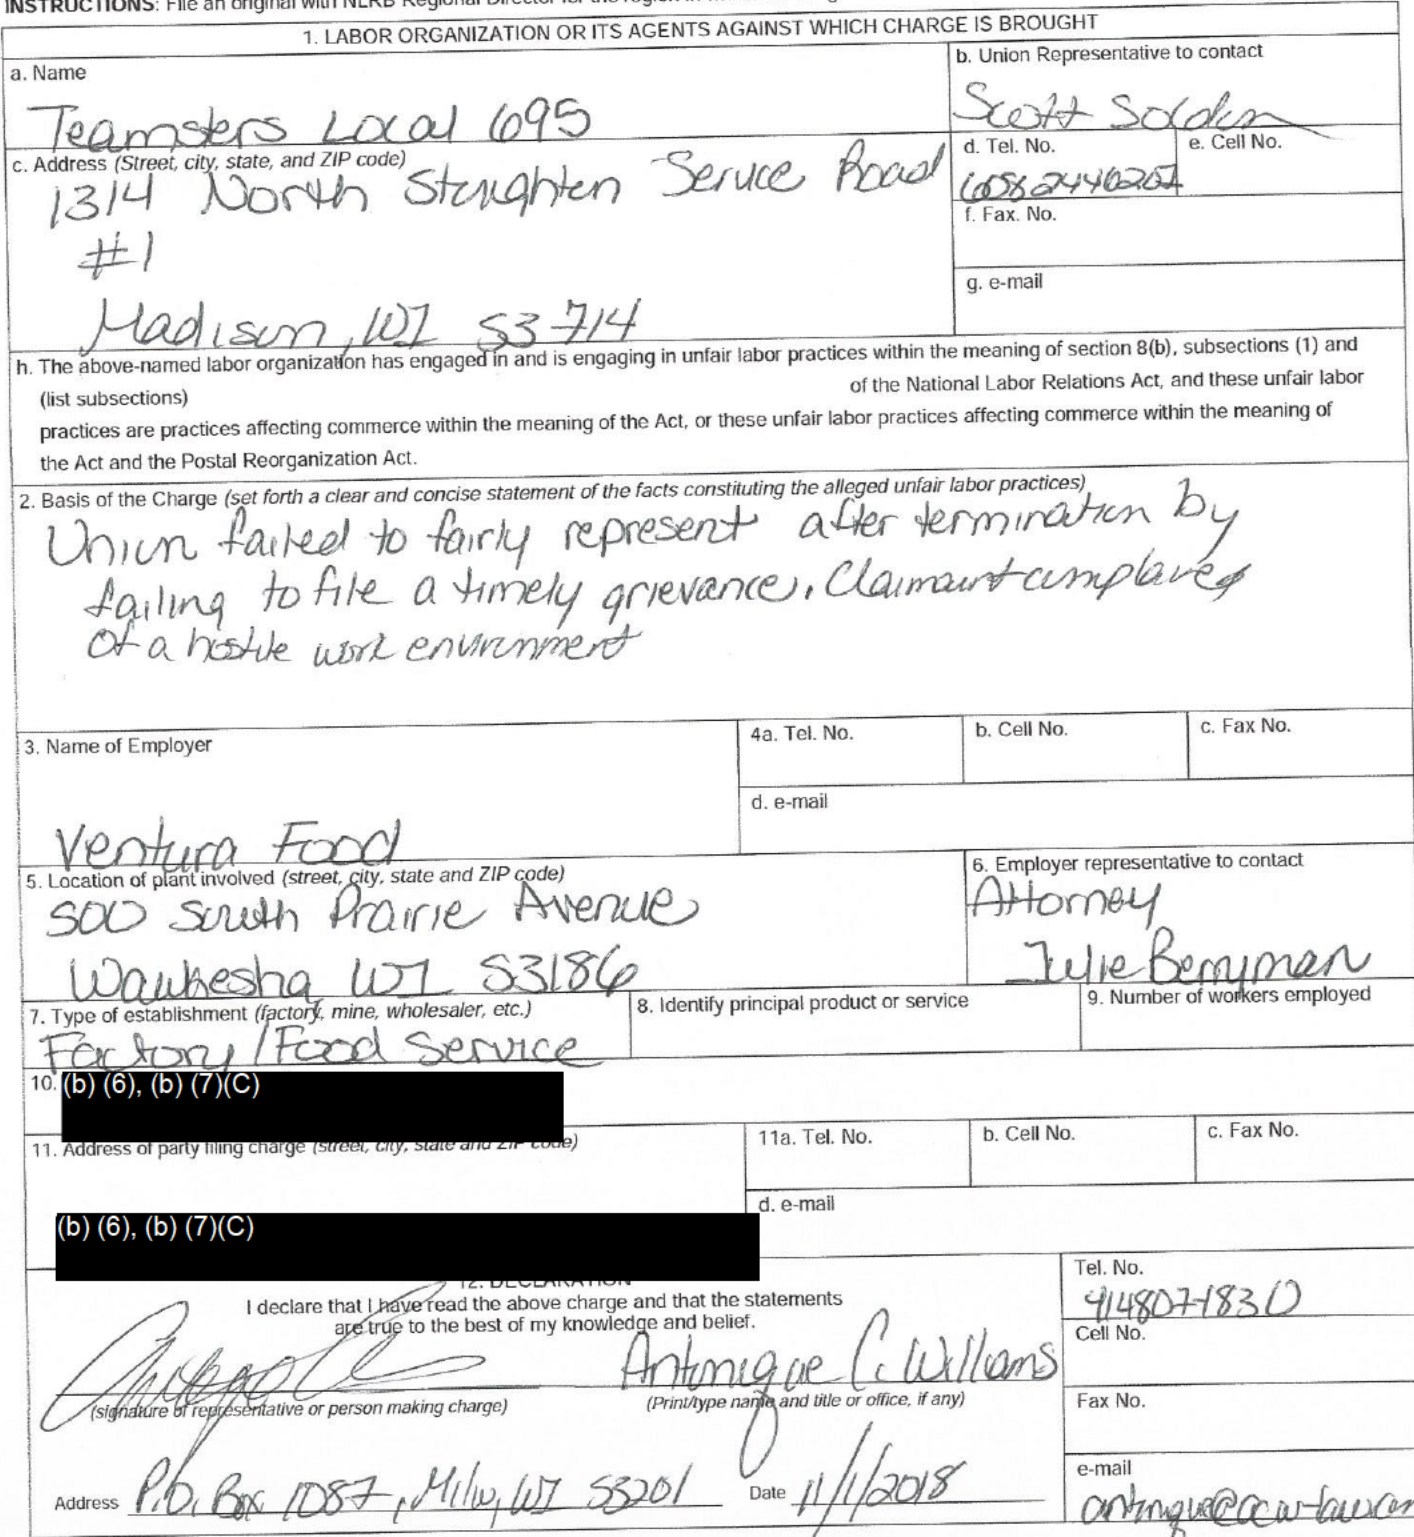 INSTRUCTIONS: File an original with NLRB Regional Director for the region in
1. LABOR ORGANIZATION OR ITS AGENTS AGAINST WHICH CHARGE IS BROUGHT
a. Name
Teamsters Local 695
b. Union Representative to contact
Scott Soldon
c. Address (Street, city, state, and ZIP code)
1314 North Stoughten Service Road
#1
Madison, WI 53714
d. Tel. No.
e. Cell No.
f. Fax. No.
g. e-mail
h. The above-named labor organization has engaged in and is engaging in unfair labor practices within the meaning of section 8(b), subsections (1) and
(list subsections) of the National Labor Relations Act, and these unfair labor
practices are practices affecting commerce within the meaning of the Act, or these unfair labor practices affecting commerce within the meaning of
the Act and the Postal Reorganization Act.
2. Basis of the Charge (set forth a clear and concise statement of the facts constituting the alleged unfair labor practices)
Union failed to fairly represent after termination by
failing to file a timely grievance. Claimant
of a hostile work environment
3. Name of Employer
Ventura Food
4a. Tel. No.
b. Cell No.
c. Fax No.
d. e-mail
5. Location of plant involved (street, city, state and ZIP code)
500 South Prairie Avenue
Waukesha WI 53186
6. Employer representative to contact
Attorney
Julie Berryman
7. Type of establishment (factory, mine, wholesaler, etc.)
Factory/Food Service
8. Identify principal product or service
9. Number of workers employed
10. (b) (6), (b) (7)(C)
11. Address of party filing charge (street, city, state and ZIP code)
(b) (6), (b) (7)(C)
11a. Tel. No.
b. Cell No.
c. Fax No.
d. e-mail
12. DECLARATION
I declare that I have read the above charge and that the statements
are true to the best of my knowledge and belief.
Antonique C. Williams
(signature of representative or person making charge)
(Print/type name and title or office, if any)
Address P.O. Box 1087, Milw, WI 53201
Date 11/1/2018
Tel. No.
4148071830
Cell No.
Fax No.
e-mail